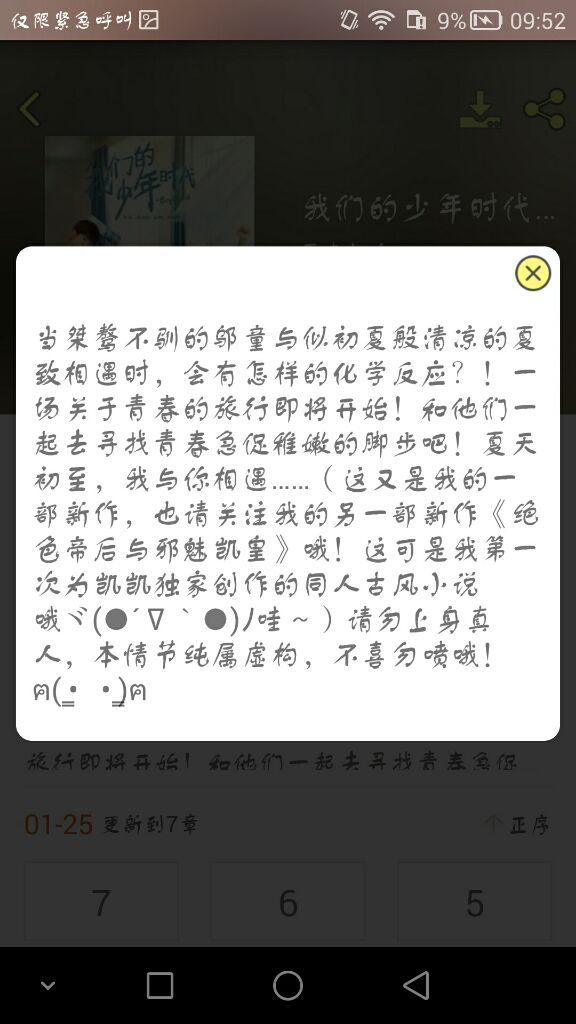 仅限紧急呼叫
9%
09:52
我们的
少年时代
我们的少年时代...
当桀骜不驯的邬童与似初夏般清凉的夏
致相遇时，会有怎样的化学反应？！一
场关于青春的旅行即将开始！和他们一
起去寻找青春急促稚嫩的脚步吧！夏天
初至，我与你相遇……（这又是我的一
部新作，也请关注我的另一部新作《绝
色帝后与邪魅凯皇》哦！这可是我第一
次为凯凯独家创作的同人古风小说
哦ヾ(●´∇｀●)ﾉ哇～）请勿上身真
人，本情节纯属虚构，不喜勿喷哦！
ฅ(̳•·̫•̳ฅ)ฅ
旅行即将开始！和他们一起去寻找青春急促
01-25 更新到7章
正序
7
6
5